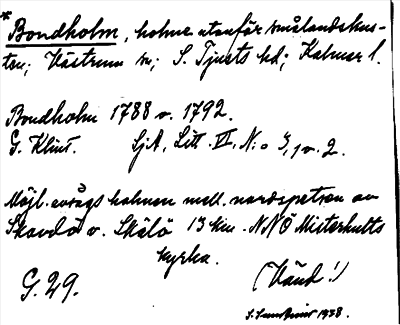 * Bondholm, holme utanför smålandskus-
ten; Västrum sn; S. Tjusts hd; Kalmar l.
Bondholm 1788 o. 1792.
G. Klint. SjA, Litt. VI, N:o 3, 1 o. 2.
Möjl. avses holmen mell. nordspetsen av
Skavdö o. Skälö 13 km. NNÖ Misterhults
kyrka.
G. 29. (Vänd!)
1938.